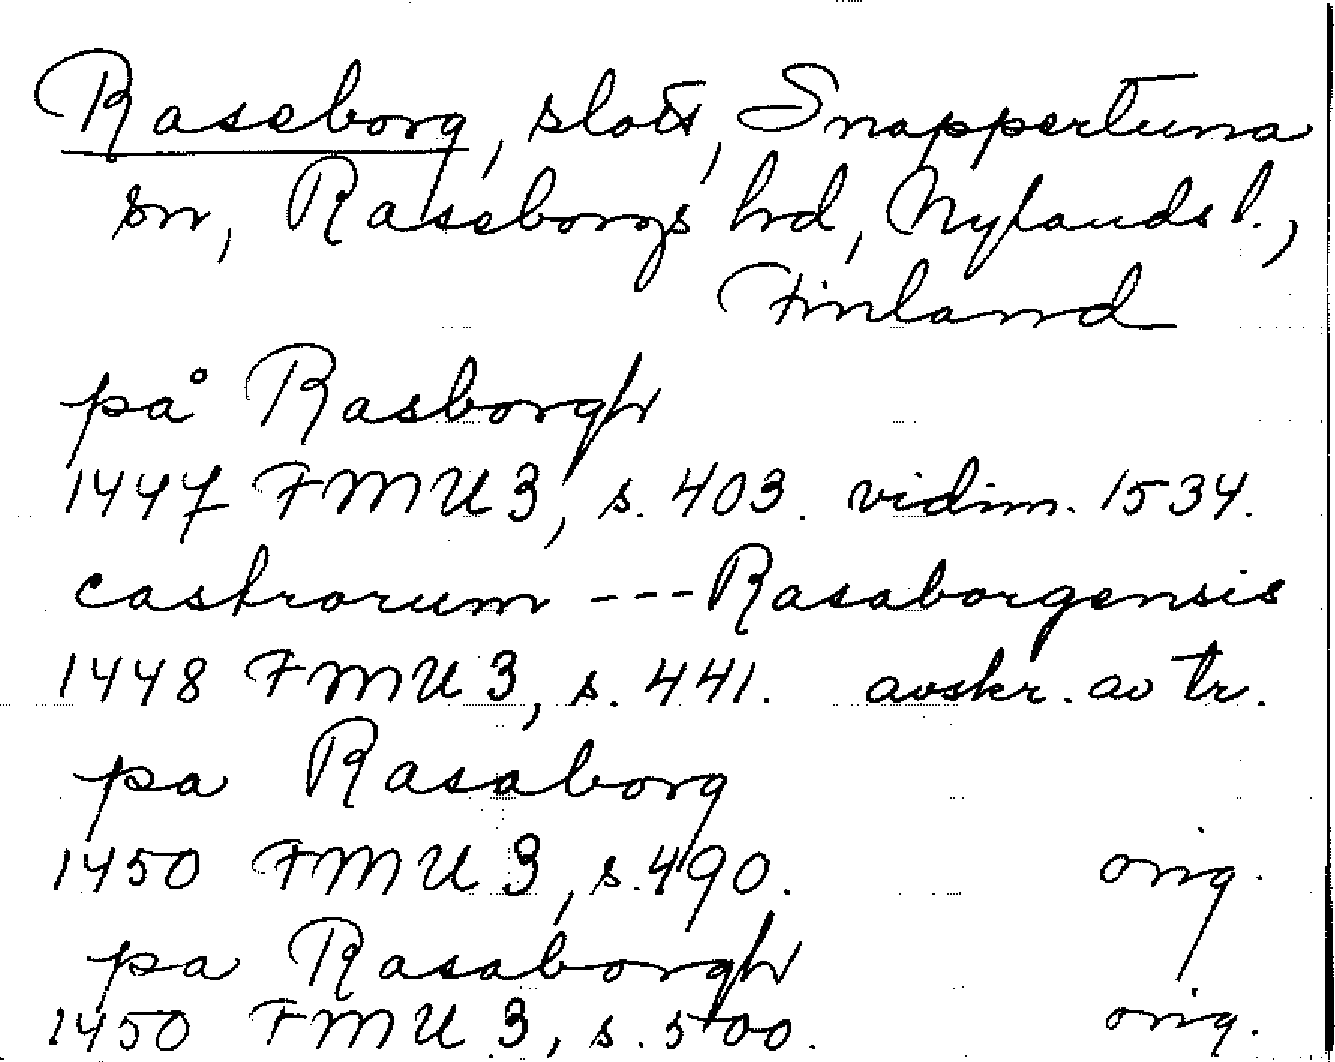 Raseborg, slott, Snappertuna
sn, Raseborgs hrd, Nylands l.,
Finland
på Rasborgh
1447 FMU 3, s. 403. vidim. 1534.
castrorum --- Rasaborgensis
1448 FMU 3, s. 441. avskr. av tr.
pa Rasaborg
1450 FMU 3, s. 490. orig.
pa Rasaborgh
1450 FMU 3, s. 500. orig.